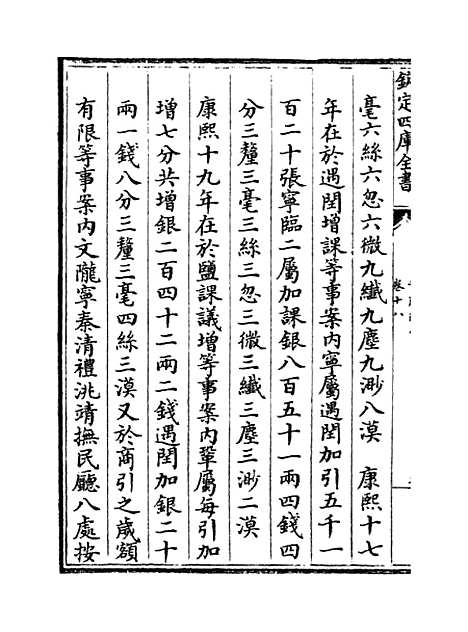 欽定四庫全書
卷十八
毫六絲六忽六微九纖九塵九渺八漠　康熙十七
年在於遇閏增課等事案內寧屬遇閏加引五千一
百二十張寧臨二屬加課銀八百五十一兩四錢四
分三釐三毫三絲三忽三微三纖三塵三渺二漠
康熙十九年在於鹽課議增等事案內鞏屬每引加
增七分共增銀二百四十二兩二錢遇閏加銀二十
兩一錢八分三釐三毫四絲三漠又於商引之歲額
有限等事案內文隴寧秦清禮洮靖撫民廳八處按